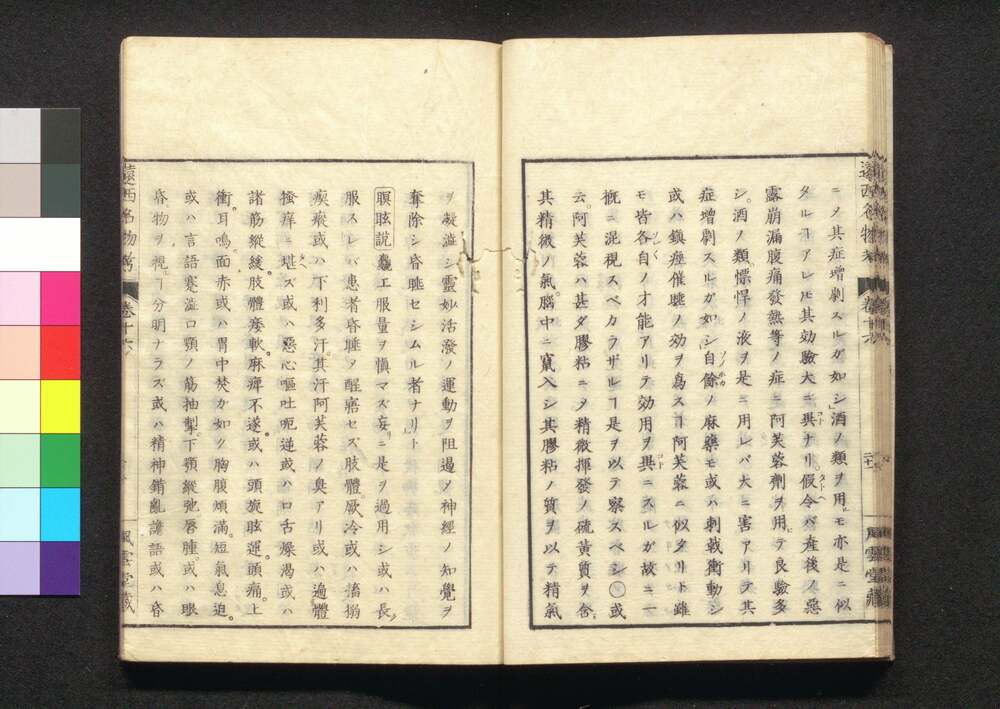 ニノ其症增劇スルガ如シ」酒ノ類ヲ用ルモ亦是ニ似
タルヿアレ𪜈其効驗大ニ異ナリ。假令バ產後ノ惡
露崩漏腹痛發熱等ノ症ニ阿芙蓉劑ヲ用テ良驗多
シ。酒ノ類慓悍ノ液ヲ是ニ用レバ大ニ害アリテ其
症增劇スルガ如シ」自餘ノ麻藥モ或ハ刺戟衝動シ
或ハ鎭痙催睡ノ効ヲ爲スヿ阿芙蓉ニ似タリト雖
モ皆各自ノ才能アリテ効用ヲ異ニスルガ故ニ一
槪ニ混視スベカラザルヿ是ヲ以テ察スベシ○或
云。阿芙蓉ハ甚ダ膠粘ニ〆精微揮發ノ硫黃質ヲ含。
其精微ノ氣。腦中ニ竄入シ其膠粘ノ質ヲ以テ精氣
遠西名物考 卷十六 二十 風雲堂藏
ヲ凝澁シ靈妙活潑ノ運動ヲ阻遏〆神經ノ知覺ヲ
奪除シ昏睡セシムル者ナリト
瞑眩說 麤工服量ヲ愼マズ妄リニ是ヲ過用シ或ハ長ク
服スレバ患者昏睡〆醒寤セズ肢體厥冷或ハ搐搦
瘈瘲或ハ下利多汗。其汗阿芙蓉ノ臭アリ或ハ過體
搔痒ニ堪ズ或ハ惡心嘔吐呃逆或ハ口舌燥渴或ハ
諸筋縱緩肢體痿軟麻痺不遂或ハ頭旋眩運。頭痛。上
衝耳鳴。面赤或ハ胃中焚ガ如ク胸腹煩滿。短氣息迫。
或ハ言語蹇澁口顎ノ筋抽掣。下顎縱弛唇腫。或ハ眼
昏物ヲ視ルヿ分明ナラズ或ハ精神錯亂譫語或ハ昏
遠西名物考 卷十六 風雲堂藏